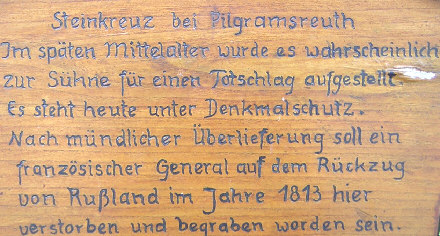 Steinkreuz bei Pilgramsreuth
Im späten Mittelalter wurde es wahrscheinlich
zur Sühne für einen Totschlag aufgestellt
Es steht heute unter Denkmalschutz.
Nach mündlicher Überlieferung soll ein
französischer General auf dem Rückzug
von Rußland im Jahre 1813 hier
verstorben und begraben worden sein.